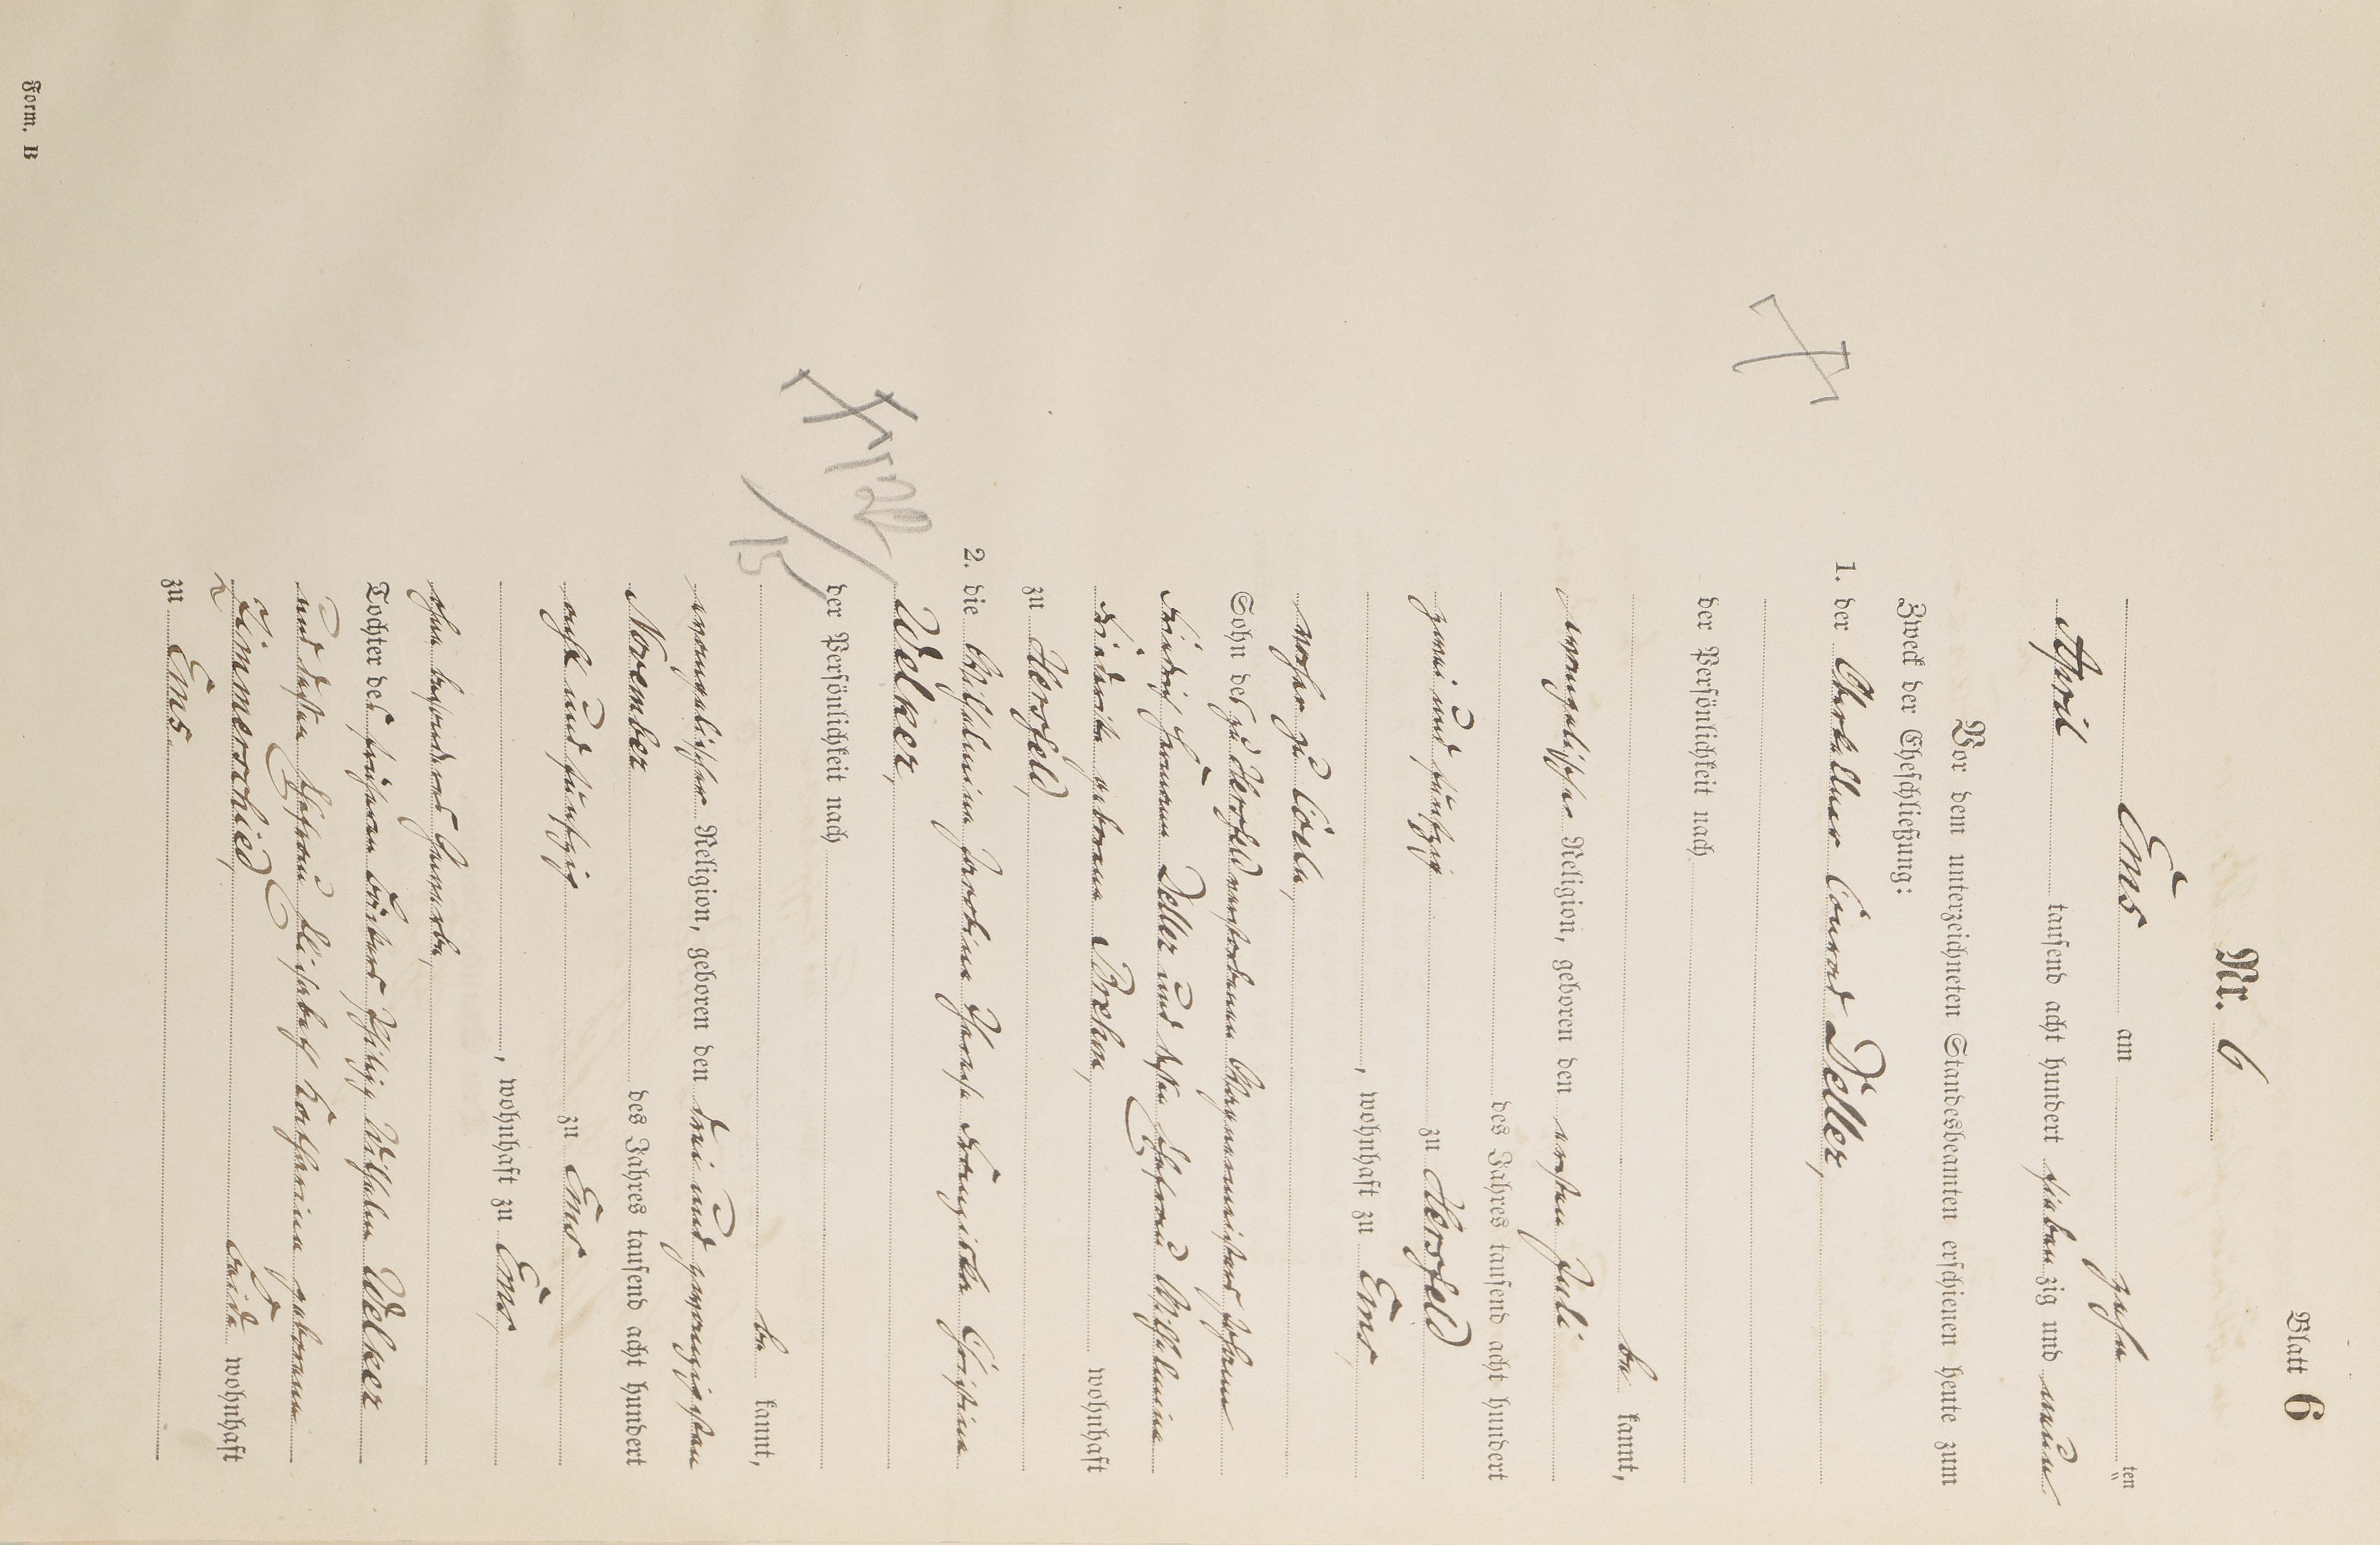 Blatt 6
Nr. 6
Ems am zehn ten
April tausend acht hundert sieben zig und neun
Vor dem unterzeichneten Standesbeamten erschienen heute zum
Zweck der Eheschließung:
1. der Oberkellner Conrad Deller,
der Persönlichkeit nach
be kannt,
evangelischer Religion, geboren den ersten Juli
des Jahres tausend acht hundert
zwei und fünfzig zu Hersfeld
, wohnhaft zu Ems,
vorher zu Cöln,
Sohn des zu Hersfeld verstorbenen Wagnermeisters Johann
Friedrich Hermann Deller und dessen Ehefrau Wilhelmine
Friederike geborene Brehm,
wohnhaft
zu Hersfeld,
2. die Wilhelmine Karoline Therese Franziska Christine
Welker,
der Persönlichkeit nach
be kannt,
evangelischer Religion, geboren den drei und zwanzigsten
November des Jahres tausend acht hundert
acht und fünfzig zu Ems
, wohnhaft zu Ems,
ohne besonderes Gewerbe,
Tochter des früheren Philipp Wilhelm Welker
und dessen Ehefrau Elisabeth Katharina geborenen
Zimmerschied, beide wohnhaft
zu Ems.
Form. B